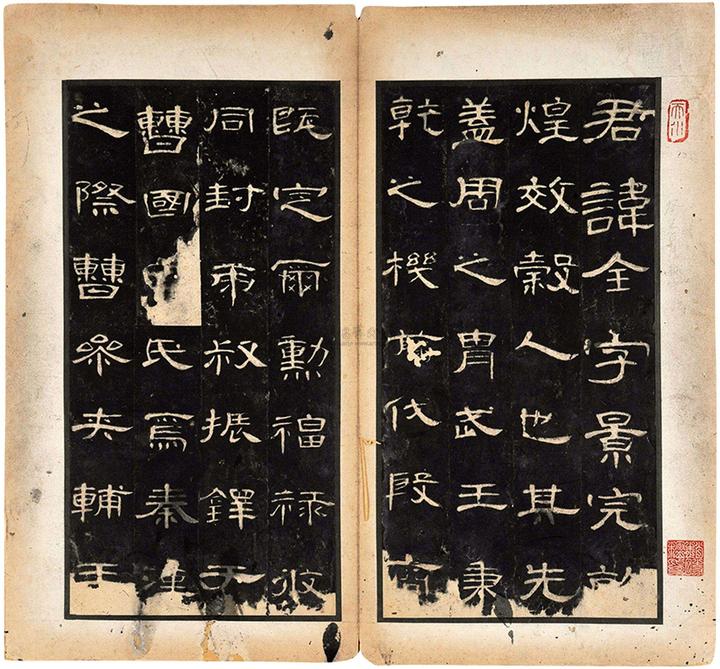 君諱全字景完
煌效穀人也其先
蓋周之胄武王秉
乾之機翦伐殷商
既定爾勳福祿攸
同封弟叔振鐸于
曹國氏焉秦漢
之際曹參夾輔王